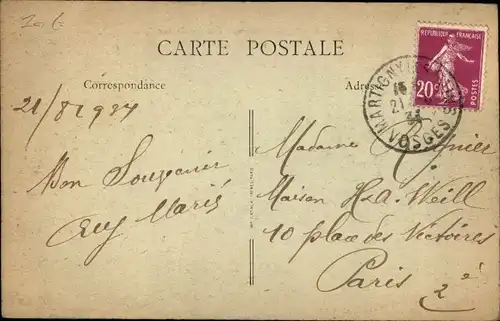 CARTE POSTALE
Correspondance
Adresse
REPUBLIQUE FRANÇAISE
20c
POSTES
MARTIGNY
VOSGES
21/8/1934
Bon Souvenir
Madame
Maison H & A. Weill
10 place des Victoires
Paris 2è